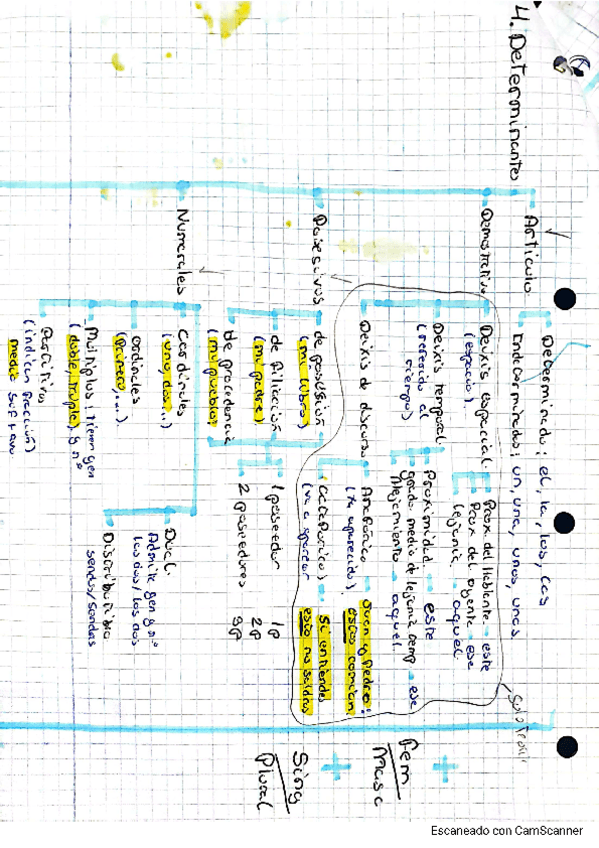 4. Determinantes
Artículo
Determinado: el, la, los, las
Indeterminados: un, una, unos, unas
Demostrativo
Deixis espacial
(espacio).
Prox. del Hablante - este
Prox del oyente - ese
lejanía - aquel
Deixis temporal
(referido al
tiempo)
Proximidad - este
grado medio de lejanía temp - ese
Alejamiento - aquel
Deixis de discurso
Anafórico
(ya aparecido)
Juan y Pedro:
estos comían
Catafórico
(va a aparecer
si entiendes
esto no saldras
Solo
Posesivos
de posesión
(mi libro)
de filiación
(mi padre)
de procedencia
(mi pueblo)
1 poseedor
2 poseedores
1p
2p
3p
Numerales
Cardinales
(uno, dos...)
Ordinales
(primero,...)
Multiplos: tienen gen
(doble, triple). y nº
Partitivo
(indican fracción)
medio
Dual.
Admite gen y nº
los dos/las dos
Distributivo
sendos/sendas
+
Fem
Masc
+
Sing
Plural
Escaneado con CamScanner